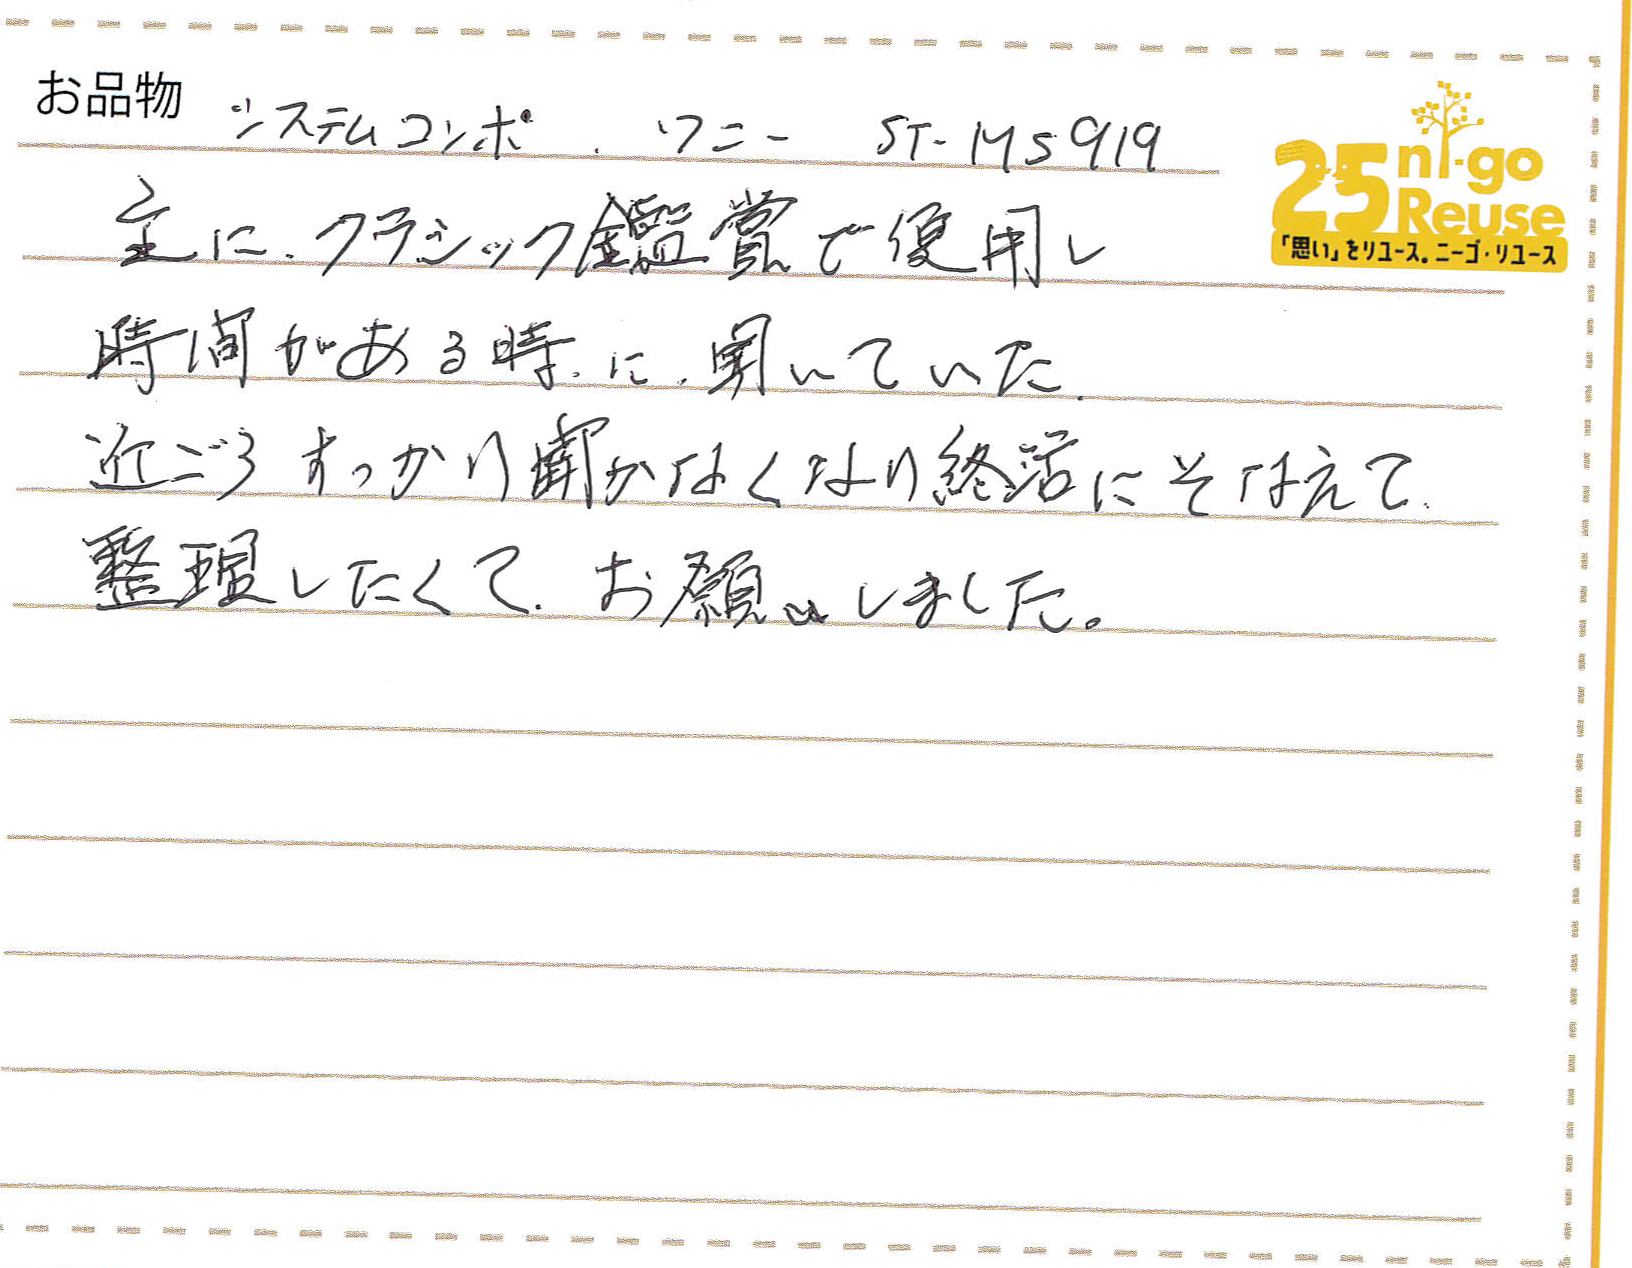 お品物 システムコンポ. ソニー ST-MS919
25 ni-go Reuse
「思い」をリユース。ニーゴ・リユース
主に.クラシック鑑賞で使用し
時間がある時.に.聞いていた.
近ごろすっかり聞かなくなり終活にそなえて.
整理したくて.お願いしました。